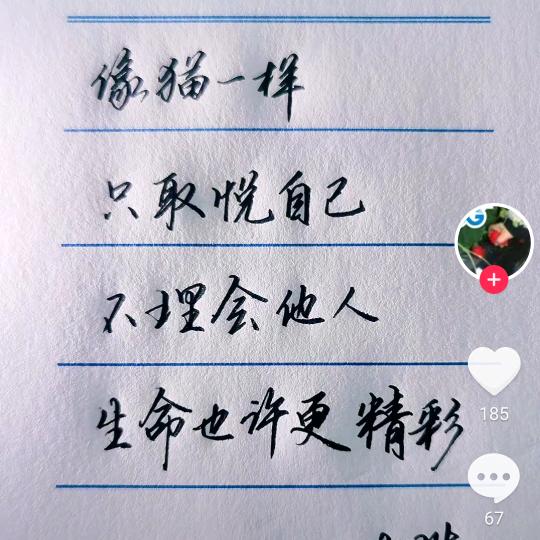 像猫一样
只取悦自己
不理会他人
生命也许更精彩
185
67